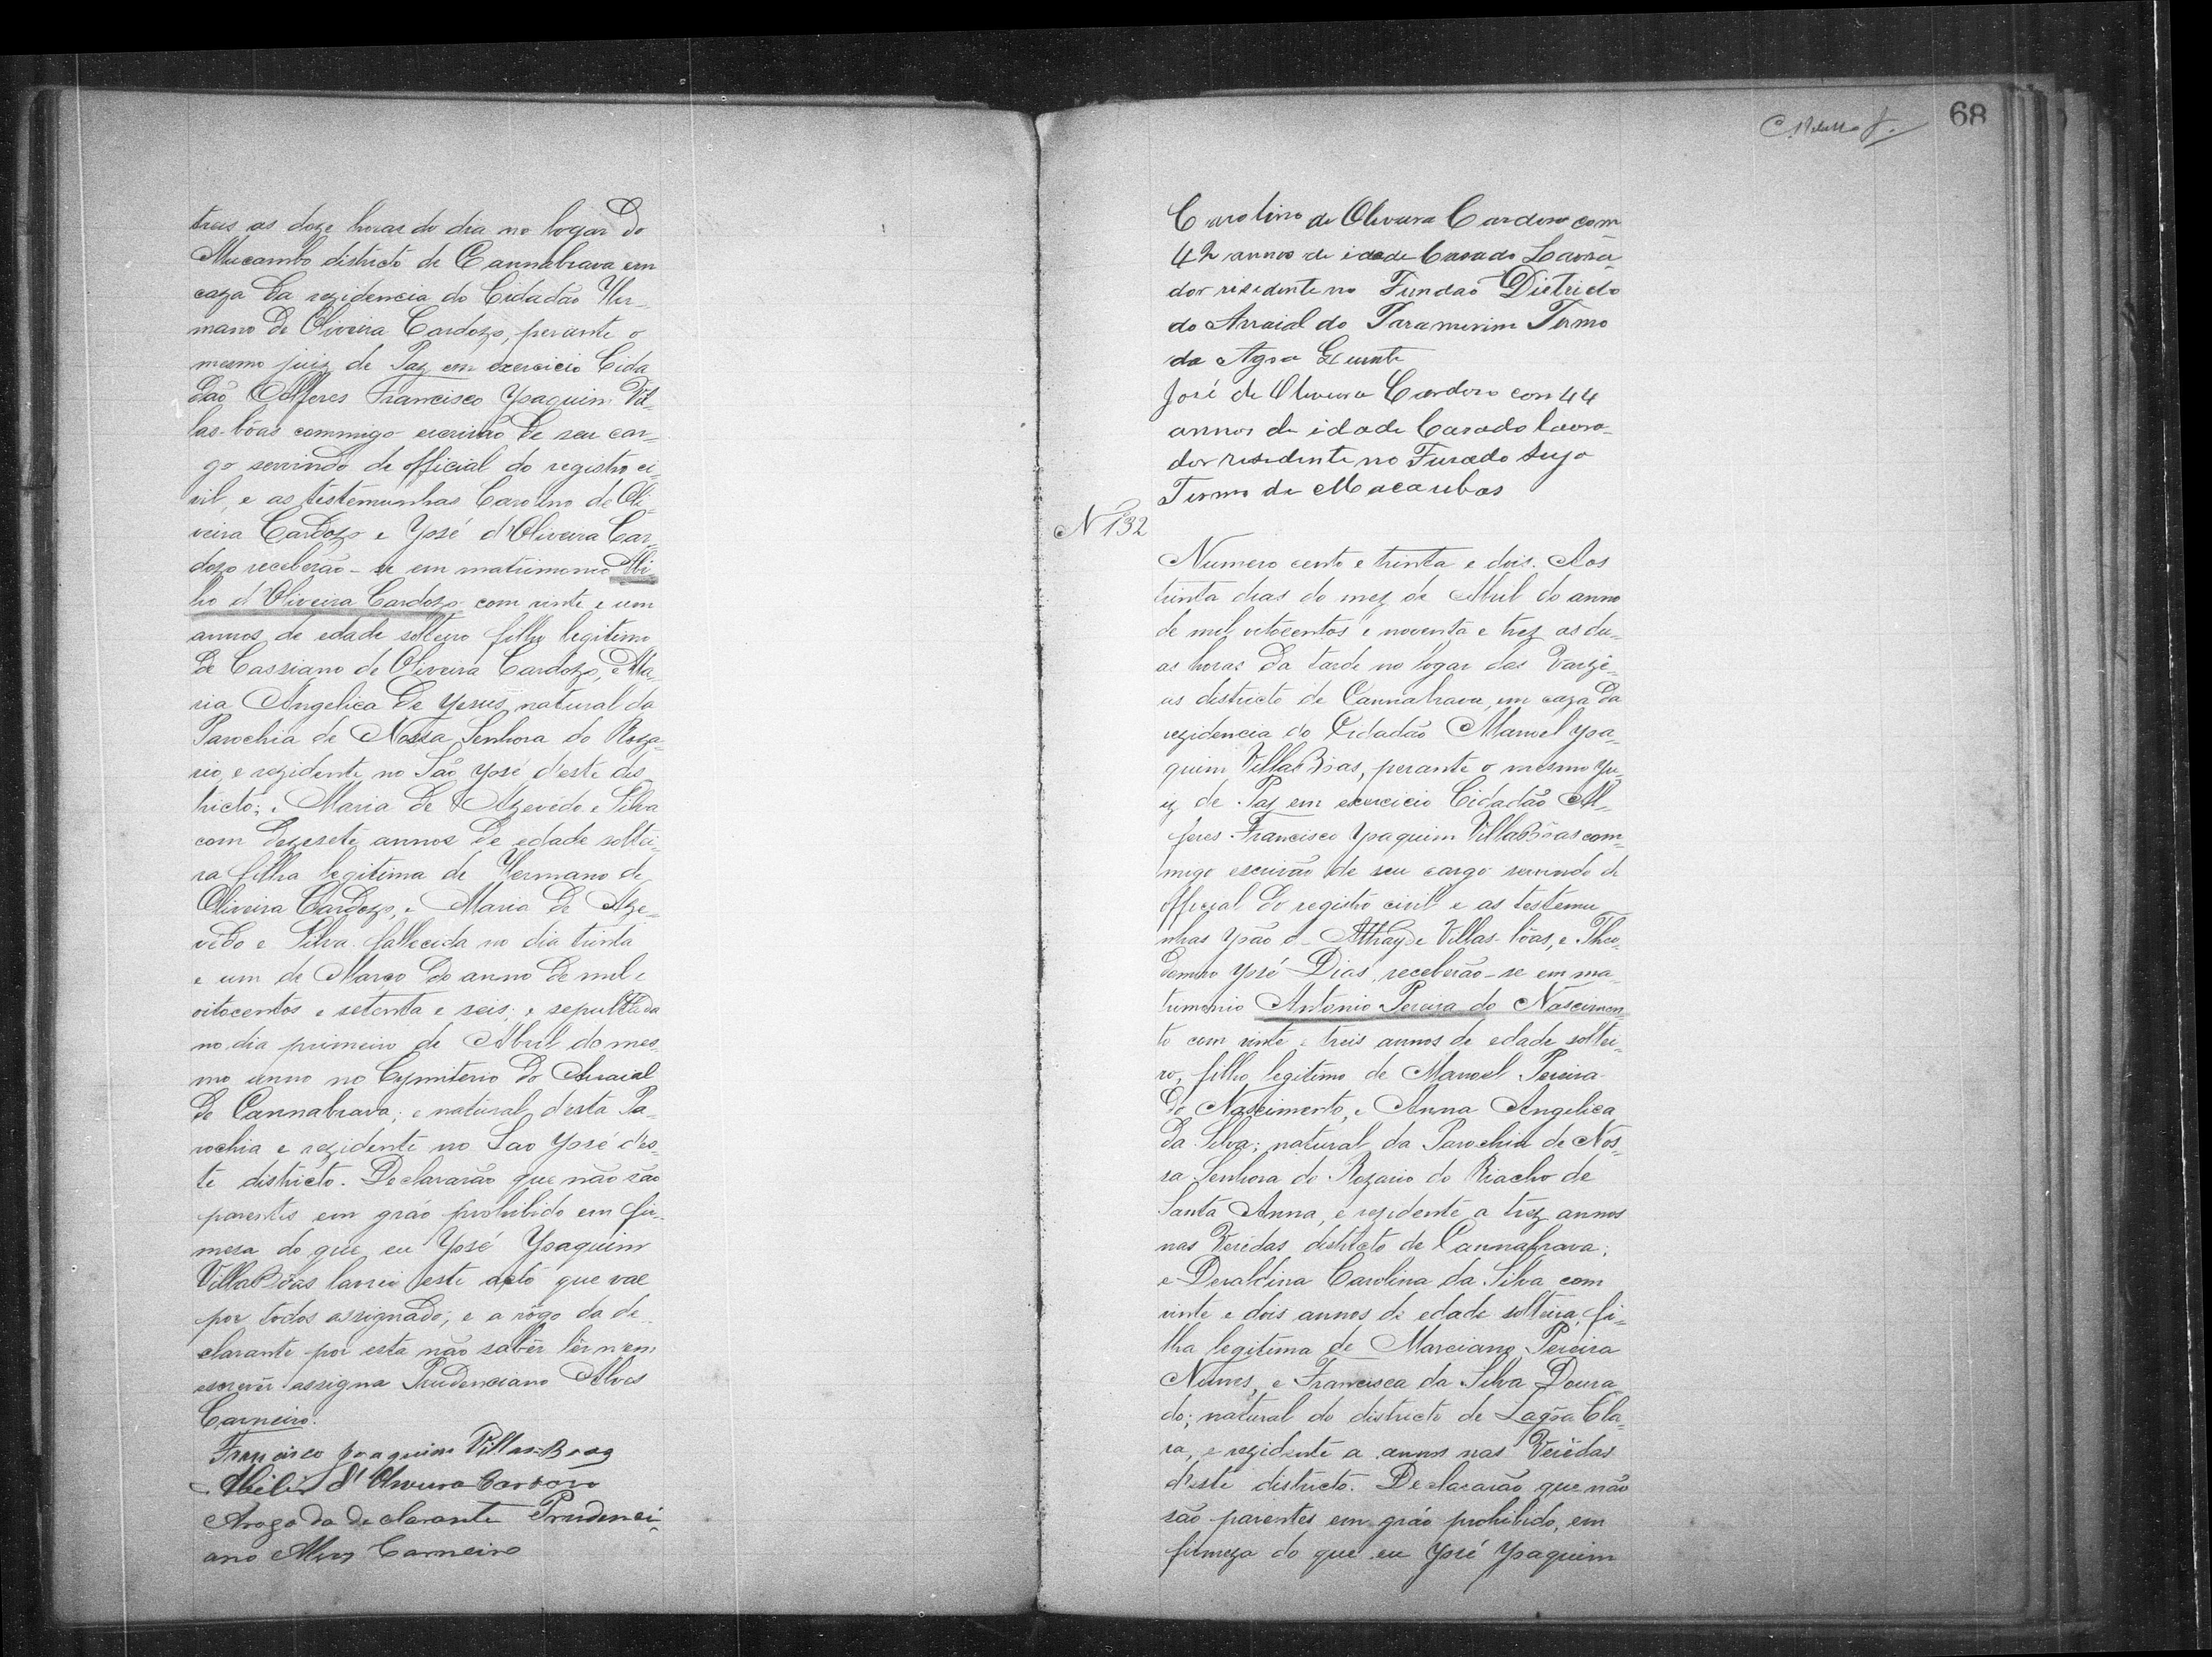 treis as doze horas do dia no logar do
Mucambo districto de Cannabrava em
caza da rezidencia do Cidadão Her-
mano de Oliveira Cardozo, perante o
mesmo juiz de Paz em exercicio Cida
dão Alferes Francisco Joaquim Vil-
las-bôas commigo escrivão de seu car-
go servindo de official do registro ci-
vil, e as testemunhas Carolino de Oli-
veira Cardozo e José d'Oliveira Car-
dozo receberão-se em matrimonio Abi-
lio d'Oliveira Cardozo com vinte e um
annos de edade solteiro filho legitimo
de Cassiano de Oliveira Cardozo, e Ma-
ria Angelica de Jesus, natural da
Parochia de Nossa Senhora do Roza-
rio, e rezidente no São José d'este dis-
tricto; e Maria de Azevêdo e Silva
com dezesete annos de edade soltei-
ra filha legitima de Hermano de
Oliveira Cardozo, e Maria de Aze-
vêdo e Silva fallecida no dia trinta
e um de Março do anno de mil e
oitocentos e setenta e seis; e sepultada
no dia primeiro de Abril do mes-
mo anno no Cymiterio do Arraial
de Cannabrava; e natural d'esta Pa-
rochia e rezidente no Sao José d'es-
te districto. Declararão que não são
parentes em gráo prohibido em fir-
meza do que eu José Joaquim
VillaBôas lavrei este acto que vae
por todos assignado; e a rôgo da de-
clarante por esta não sabêr lêr nem
escrevêr assigna Prudenciano Alves
Carneiro.
Francisco Joaquim Villas-Boas
Abilio d'Oliveira Cardozo
Arogo da declarante Prudenci-
ano Alves Carneiro
68
Carolino de Oliveira Cardoso com
42 annos de idade Casado Lavra-
dor residente no Fundaō Districto
do Arraial do Paramirim Termo
da Agoa Quente
José de Oliveira Cardoso con 44
annos de idade Casado lavra-
dor residente no Furado sujo
Termo de Macaubas
N 132
Numero cento e trinta e dois. Aos
trinta dias do mez de Abril do anno
de mil oitocentos e noventa e trez as du-
as horas da tarde no logar das Varzê-
as districto de Cannabrava, em caza da
rezidencia do Cidadão Manoel Joa-
quim VillaBôas, perante o mesmo Ju-
iz de Paz em exercicio Cidadão Al-
feres Francisco Joaquim VillaBôas com-
migo escrivão de seu cargo servindo de
official do registro civil e as testemu-
nhas João d'Athayde Villas-bôas, e Theo-
domiro José Dias, receberão-se em ma-
trimonio Antonio Pereira do Nascimen-
to com vinte e treis annos de edade soltei-
ro, filho legitimo de Manoel Pereira
do Nascimento, e Anna Angelica
da Silva; natural da Parochia de Nos-
sa Senhora do Rozario do Riacho de
Santa Anna, e rezidente a trez annos
nas Verêdas districto de Cannabrava;
e Deraldina Carolina da Silva com
vinte e dois annos de edade solteira, fi-
lha legitima de Marciano Pereira
Nunes, e Francisca da Silva Doura-
do; natural do districto de Lagôa Cla-
ra, e rezidente a annos nas Verêdas
d'este districto. Declararão que não
são parentes em gráo prohibido, em
firmeza do que eu José Joaquim